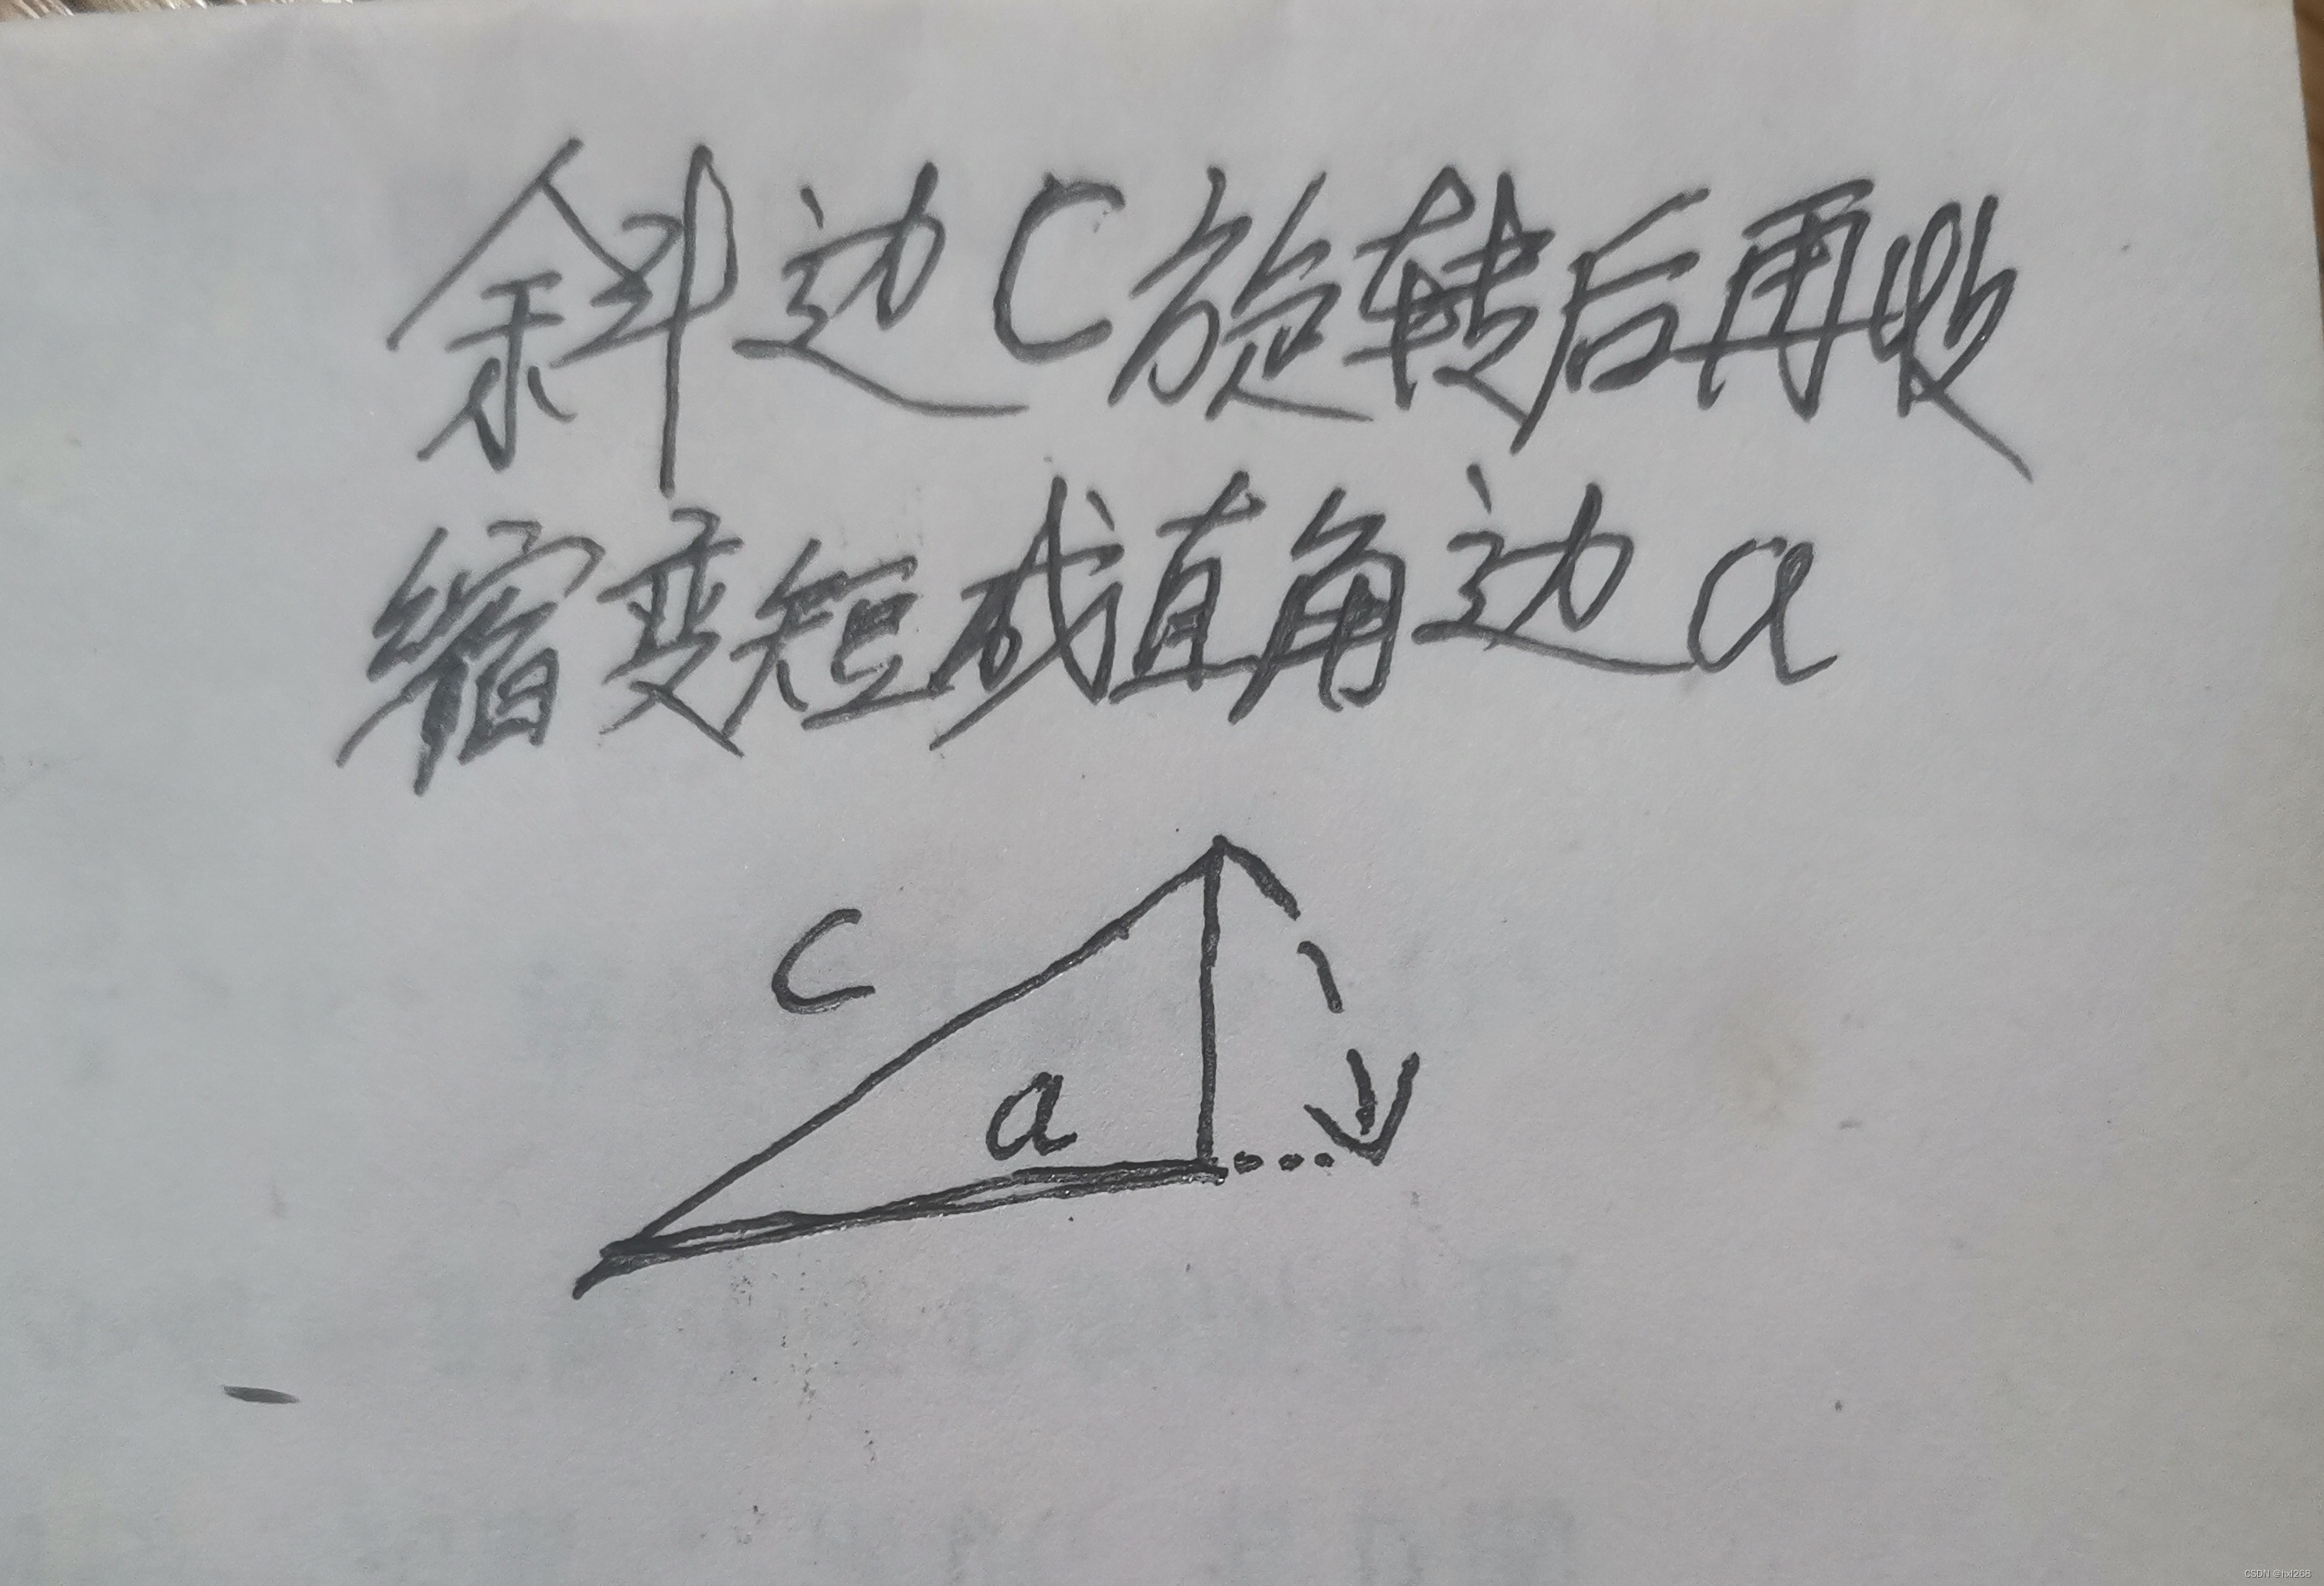 斜边C旋转后再收
缩变短成直角边a
c
a
CSDN @hxl268